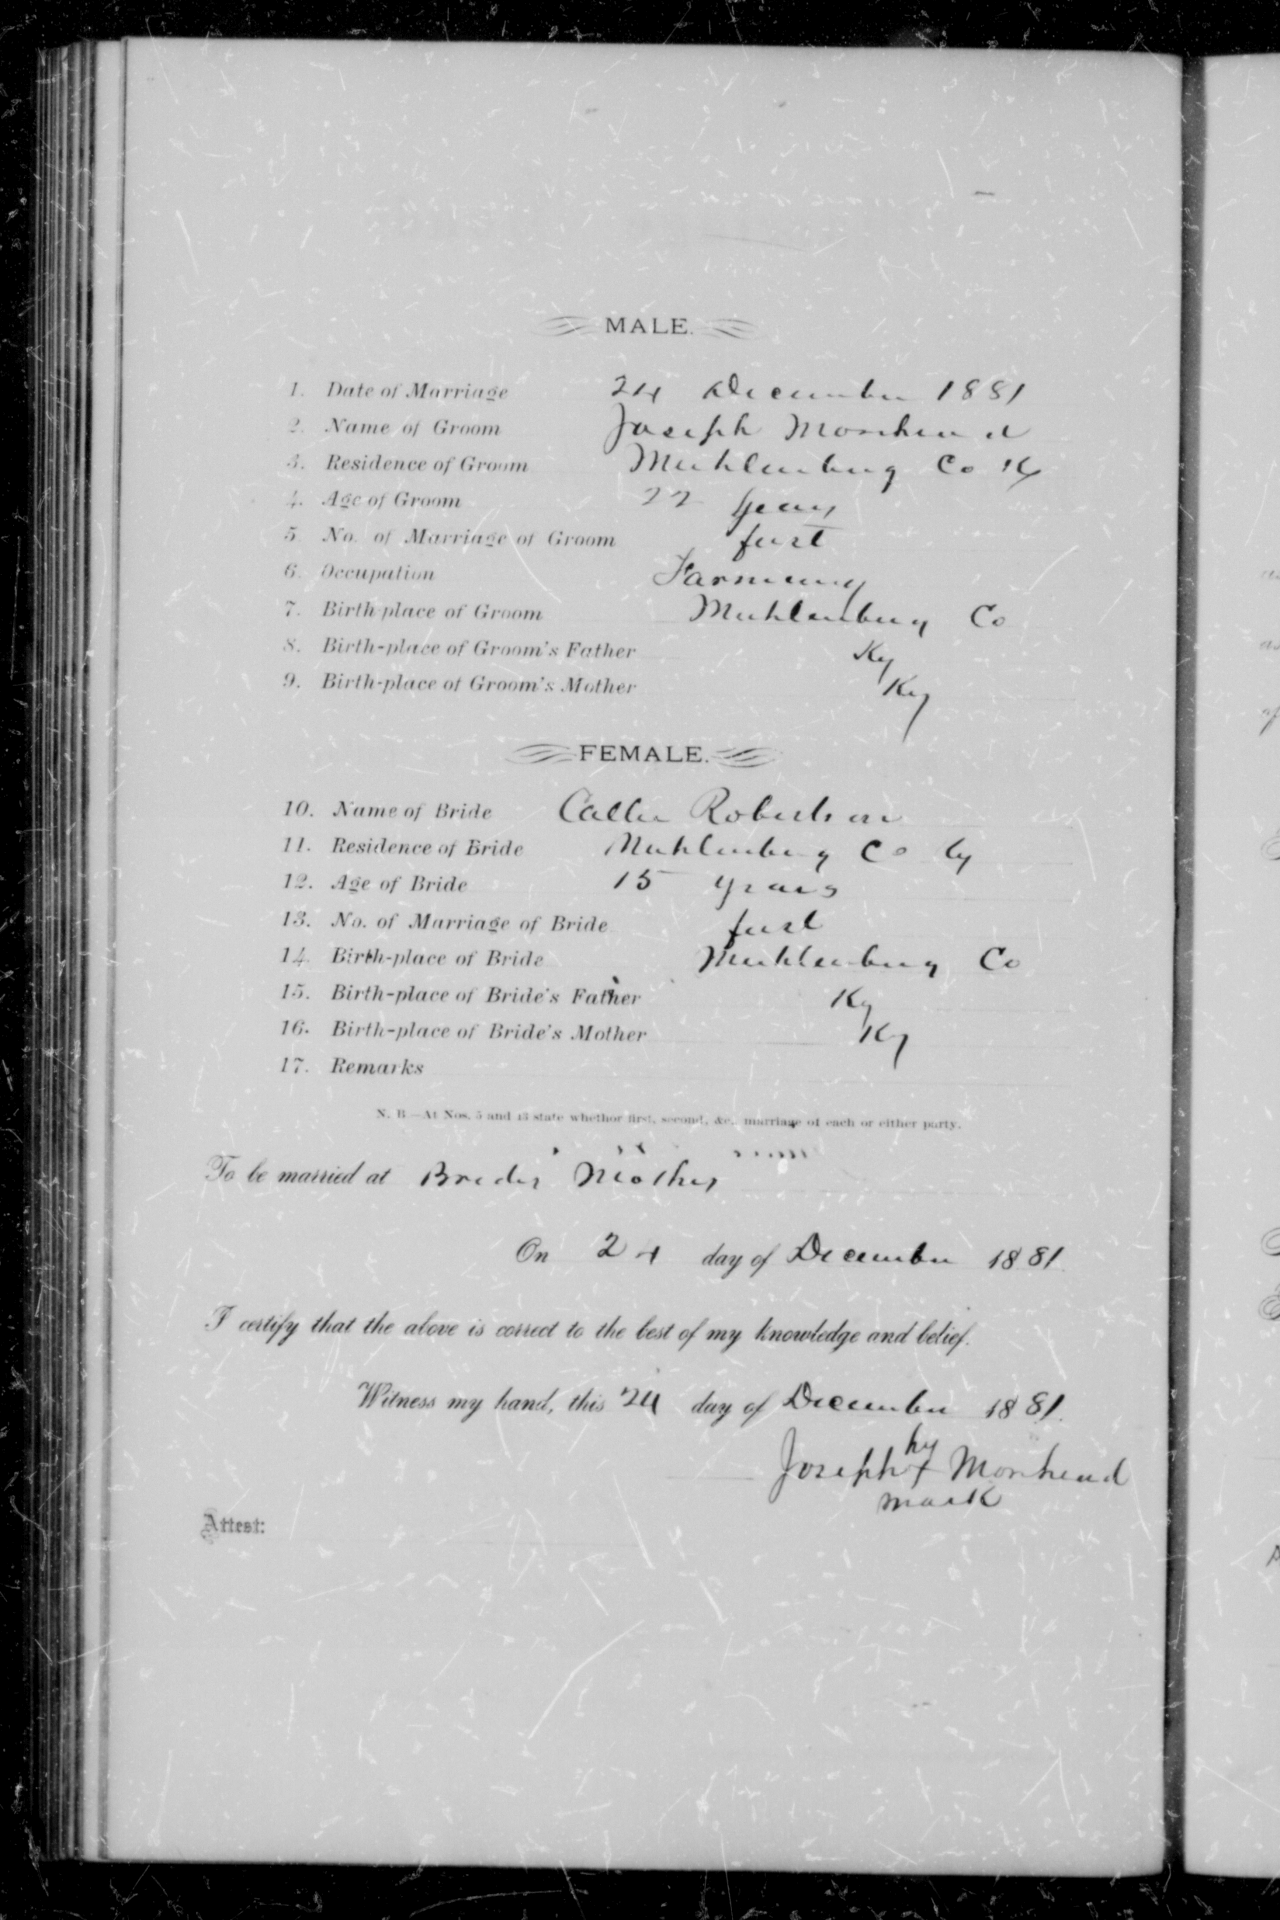 MALE.
1. Date of Marriage 24 December 1881
2. Name of Groom Joseph Morehead
3. Residence of Groom Muhlenburg Co Ky
4. Age of Groom 22 years
5. No. of Marriage of Groom first
6. Occupation Farming
7. Birth-place of Groom Muhlenburg Co
8. Birth-place of Groom's Father Ky
9. Birth-place of Groom's Mother Ky
FEMALE.
10. Name of Bride Callie Robertson
11. Residence of Bride Muhlenburg Co Ky
12. Age of Bride 15 years
13. No. of Marriage of Bride first
14. Birth-place of Bride Muhlenburg Co
15. Birth-place of Bride's Father Ky
16. Birth-place of Bride's Mother Ky
17. Remarks
N. B.—At Nos. 5 and 13 state whether first, second, &c., marriage of each or either party.
To be married at Brides Mothers
On 24 day of December 1881.
I certify that the above is correct to the best of my knowledge and belief.
Witness my hand, this 24 day of December 1881.
his
Joseph x Morehead
mark
Attest: